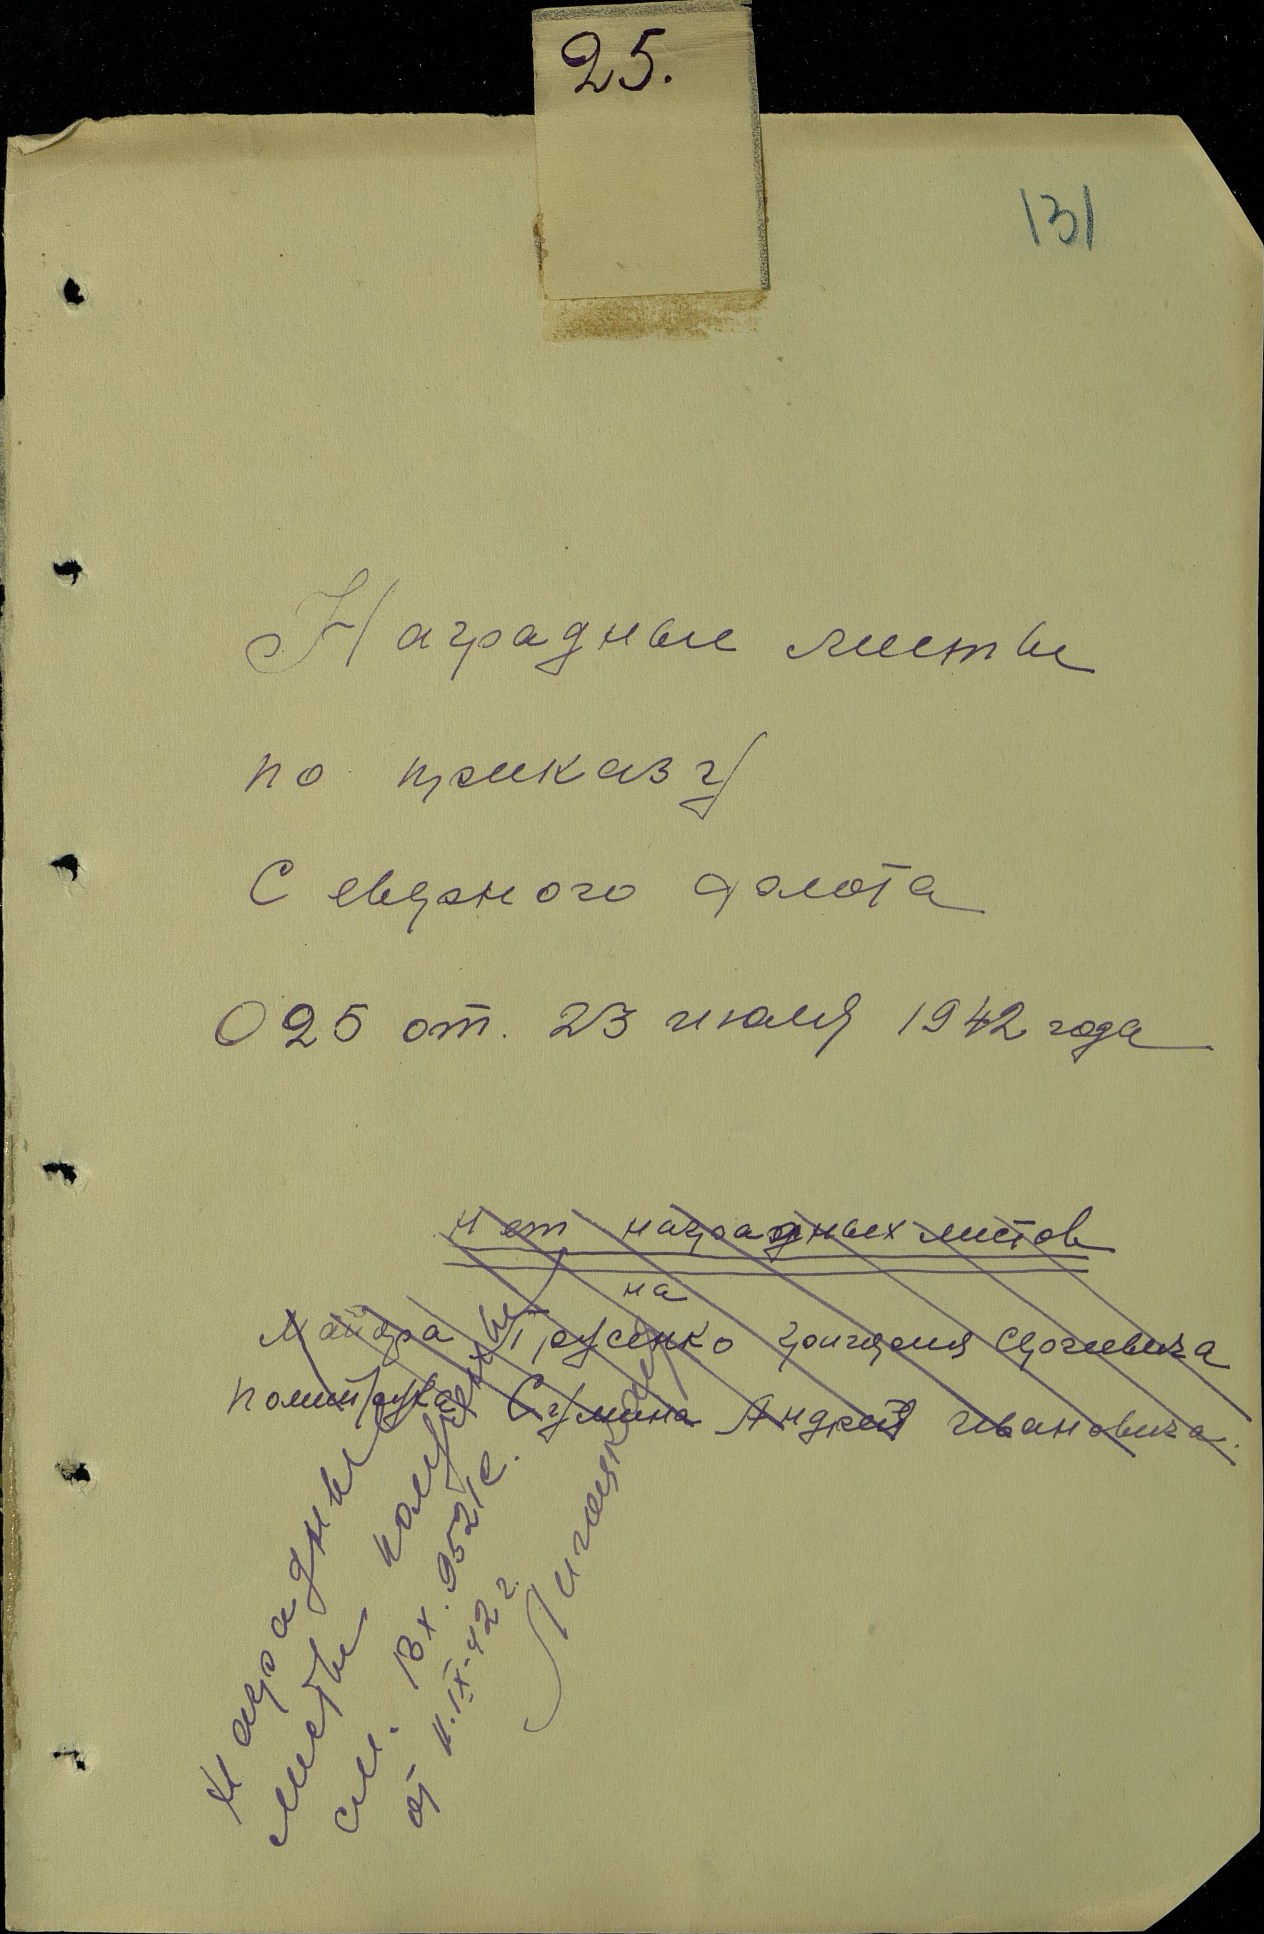 25.
131
Наградные листы
по приказу
Северного флота
025 от. 23 июля 1942 года
Нет наградных листов
на
Майора Трусенко Григория Сергеевича
политрука Сумина Андрея Ивановича.
Наградные
листы получены
см. Вх. 9521с.
от 11.IX-42 г.